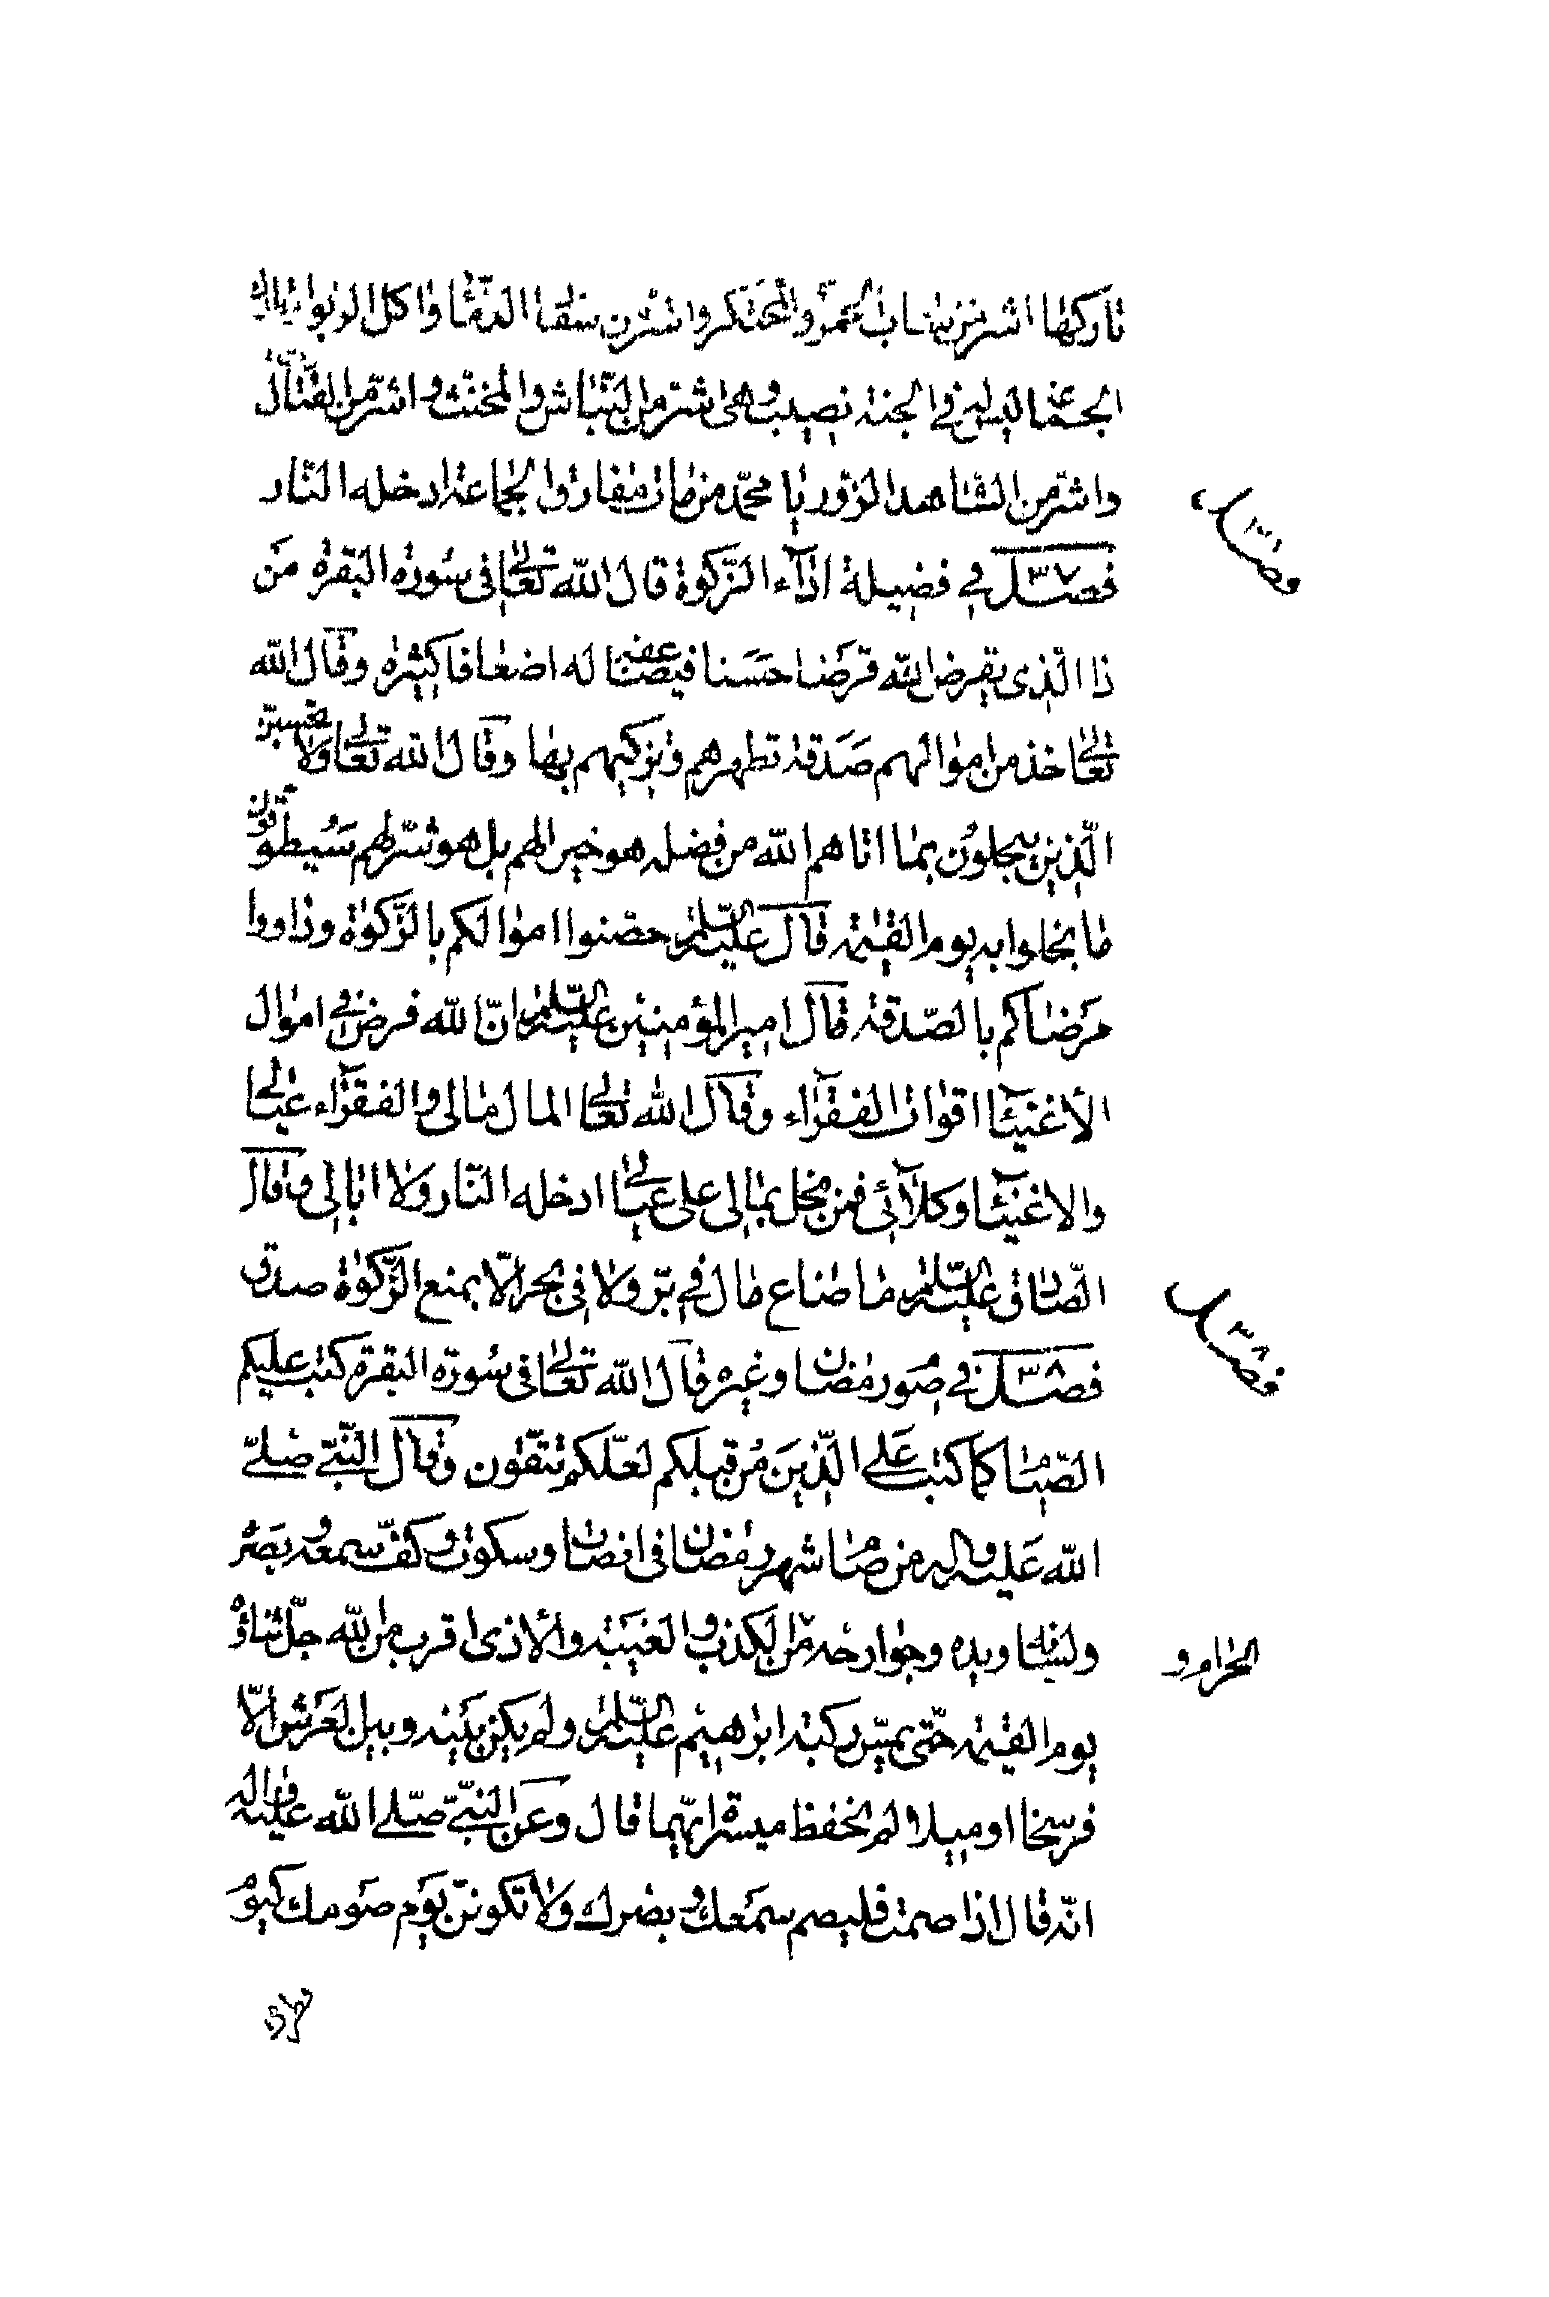 تاركها اشر من شارب الخمر والمحتكر واشر من سفاك الدماء واكل الربوا تارك
الجماعة ليس له في الجنة نصيب وهى اشر من النباش والمخنث واشر من القتال
واشر من الشاهد الزور يا محمد من مات مفارق الجماعة ادخله النار
فصل ٣٧ في فضيلة اداء الزكوة قال الله تعالى فى سورة البقرة من
ذا الذى يقرض الله قرضا حسنا فيضاعفه له اضعافا كثيرة وقال الله
تعالى خذ من اموالهم صدقة تطهرهم وتزكيهم بها وقال الله تعالى ولا تحسبن
الذين يبخلون بما اتاهم الله من فضله هو خيرا لهم بل هو شر لهم سيطوقون
ما بخلوا به يوم القيمة قال عليه السلم حصنوا اموالكم بالزكوة وداووا
مرضاكم بالصدقة قال امير المؤمنين عليه السلم ان الله فرض فى اموال
الأغنيآء اقوات الفقرآء وقال الله تعالى المال مالى والفقرآء عيالى
والاغنيآء وكلآئى فمن بخل بمالى على عيالى ادخله النار ولا ابالى وقال
الصادق عليه السلم ما ضاع مال في بر ولا فى بحر الا بمنع الزكوة صدق
فصل ٣٨ في صوم رمضان وغيره قال الله تعالى فى سورة البقرة كتب عليكم
الصيام كما كتب على الذين من قبلكم لعلكم تتقون وقال النبى صلى
الله عليه واله من صام شهر رمضان فى انصات وسكوت وكف سمعه وبصره
ولسانه ويده وجوارحه من الكذب والغيبة والأذى اقرب من الله جل ثناؤه
الحرام و
يوم القيمة حتى يمس ركبة ابرهيم عليه السلم ولم يكن بينه وبين العرش الا
فرسخا او ميلا لم يحفظ ميسرة ايهما قال وعن النبى صلى الله عليه واله
انه قال اذا صمت فليصم سمعك وبصرك ولا تكونن يوم صومك كيوم